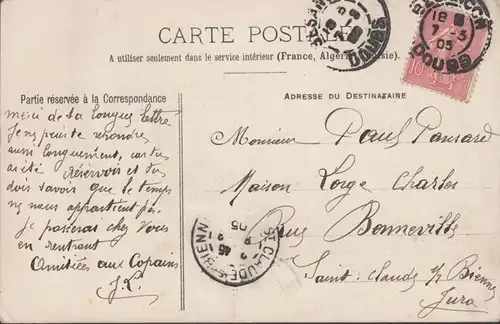 CARTE POSTALE
A utiliser seulement dans le service intérieur (France, Algérie, Tunisie).
Partie réservée à la Correspondance
merci de ta longue lettre
Je ne puis te répondre
aussi longuement, car tu
as été réserviste et tu
dois savoir que le temps
ne nous appartient pas.
Je passerai chez vous
en rentrant
Amitiées aux Copains
J.L.
ADRESSE DU DESTINATAIRE
Monsieur Paul Pansard
Maison Lorge Charles
Rue Bonneville
Saint-Claude s/ Bienne
Jura
18
7 -3
05
DOUBS
DOUBS
10
ST CLAUDE-S-BIENNE
05